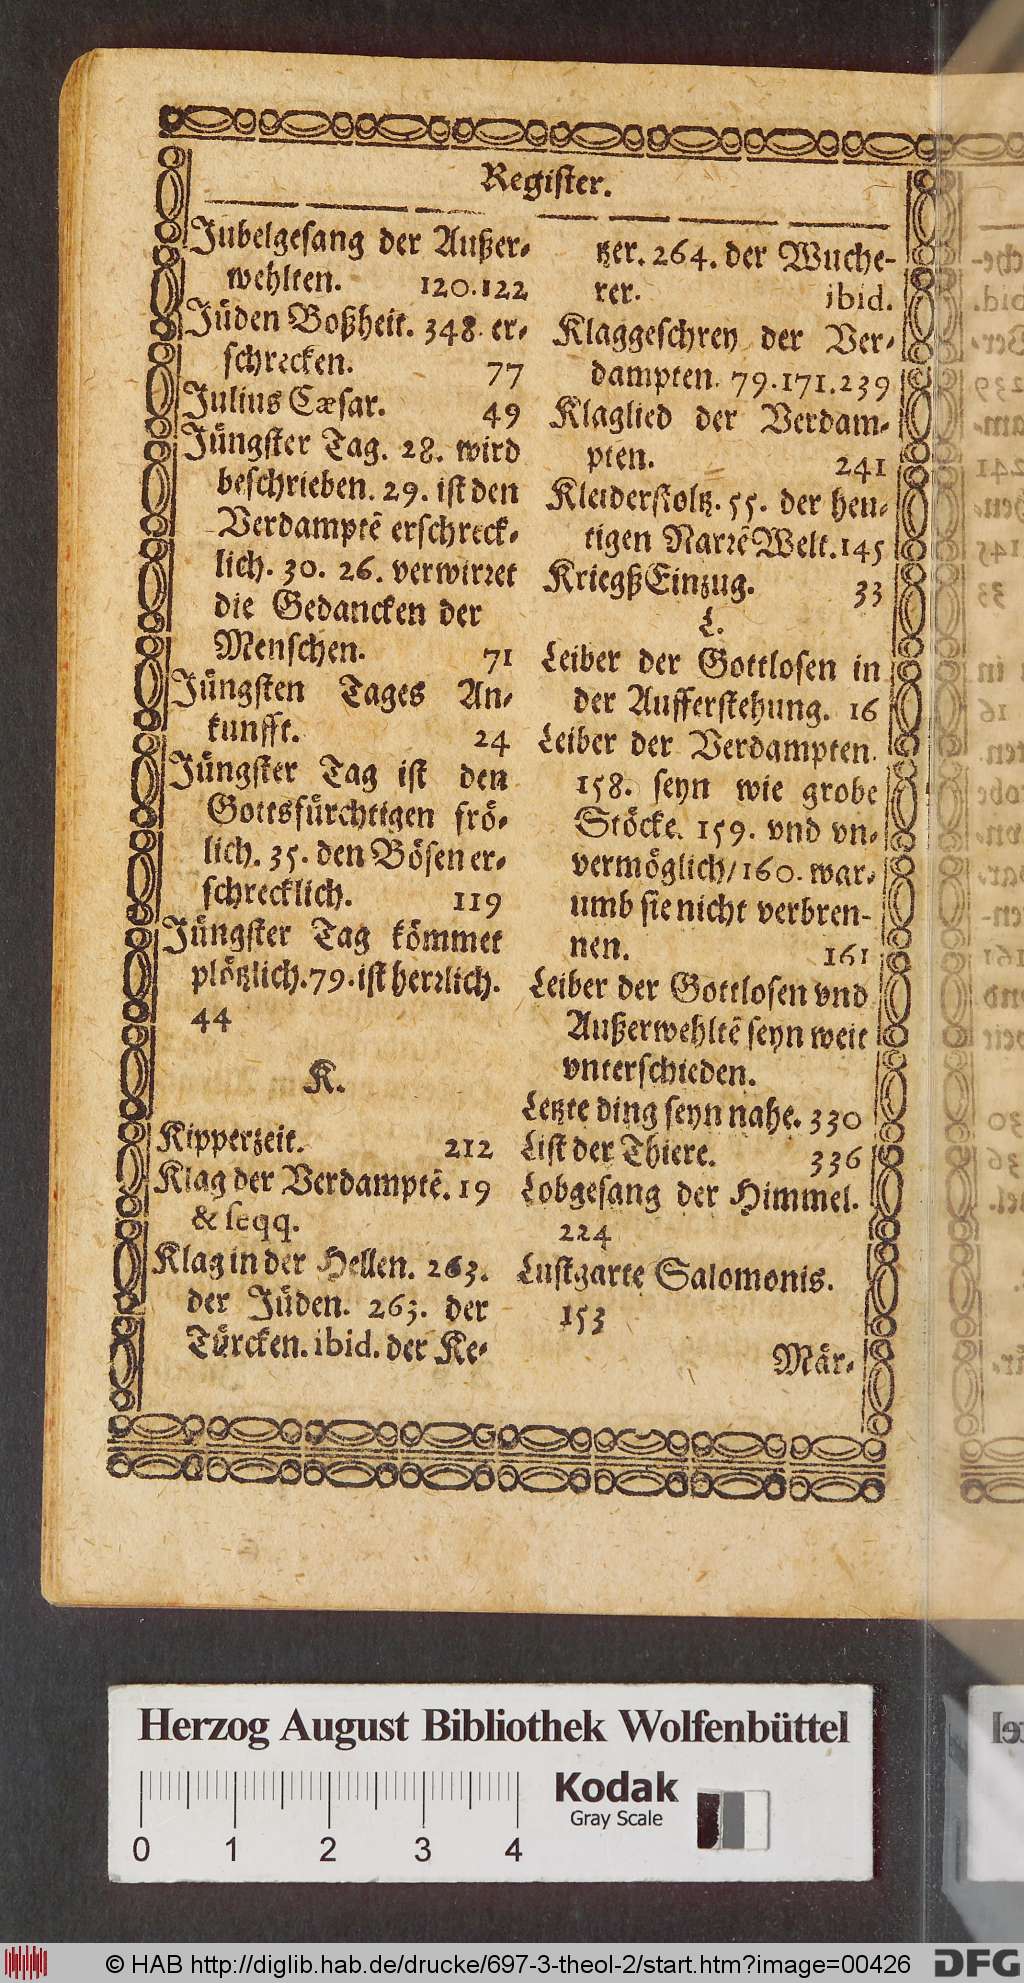 Register.
Jubelgesang der Außer-
wehlten. 120.122
Jüden Boßheit. 348. er-
schrecken. 77
Julius Cæsar. 49
Jüngster Tag. 28. wird
beschrieben. 29. ist den
Verdamptē erschreck-
lich. 30. 26. verwirret
die Gedancken der
Menschen. 71
Jüngsten Tages An-
kunfft. 24
Jüngster Tag ist den
Gottsfürchtigen frö-
lich. 35. den Bösen er-
schrecklich. 119
Jüngster Tag kömmet
plötzlich. 79. ist herrlich.
44
K.
Kipperzeit. 212
Klag der Verdamptē. 19
& seqq.
Klag in der Hellen. 263.
der Jüden. 263. der
Türcken. ibid. der Ke-
tzer. 264. der Wuche-
rer. ibid.
Klaggeschrey der Ver-
dampten. 79.171.239
Klaglied der Verdam-
pten. 241
Kleiderstoltz. 55. der heu-
tigen Narrē Welt. 145
Kriegß Einzug. 33
L.
Leiber der Gottlosen in
der Aufferstehung. 16
Leiber der Verdampten.
158. seyn wie grobe
Stöcke. 159. vnd vn-
vermöglich/ 160. war-
umb sie nicht verbren-
nen. 161
Leiber der Gottlosen vnd
Außerwehltē seyn weit
vnterschieden.
Letzte ding seyn nahe. 330
List der Thiere. 336
Lobgesang der Himmel.
224
Lustgarte Salomonis.
153
Mär-
Herzog August Bibliothek Wolfenbüttel
Kodak
Gray Scale
0 1 2 3 4
© HAB http://diglib.hab.de/drucke/697-3-theol-2/start.htm?image=00426
DFG